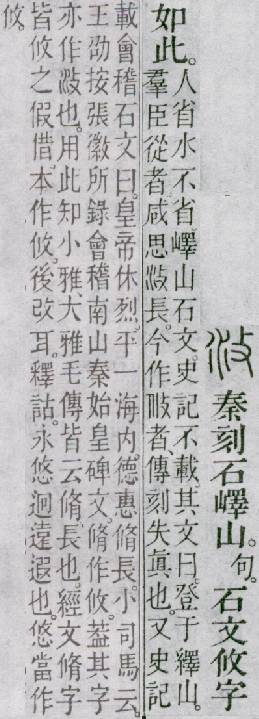 𣲌 秦刻石嶧山。句。石文攸字
如此。
人省水不省嶧山石文。史記不載。其文曰。登于繹山。
羣臣從者。咸思𣲌長。今作者、傳刻失眞也。又史記
載會稽石文曰。皇帝休烈。平一海内。德惠脩長。小司馬云。
王劭按張徽所錄會稽南山秦始皇碑文。脩作攸。葢其字
亦作𣲌也。用此知小雅、大雅毛傳皆云脩、長也。經文脩字
皆攸之假借。本作攸。後改耳。釋詁。永悠迥遠遐也。悠當作
攸。